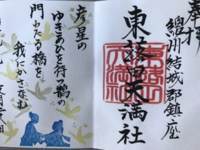 奉拝
總州結城郡鎮座
東蕗田天満社
彦星の
ゆきあひを待つ鵲の
門わたる橋を
我にかさなむ